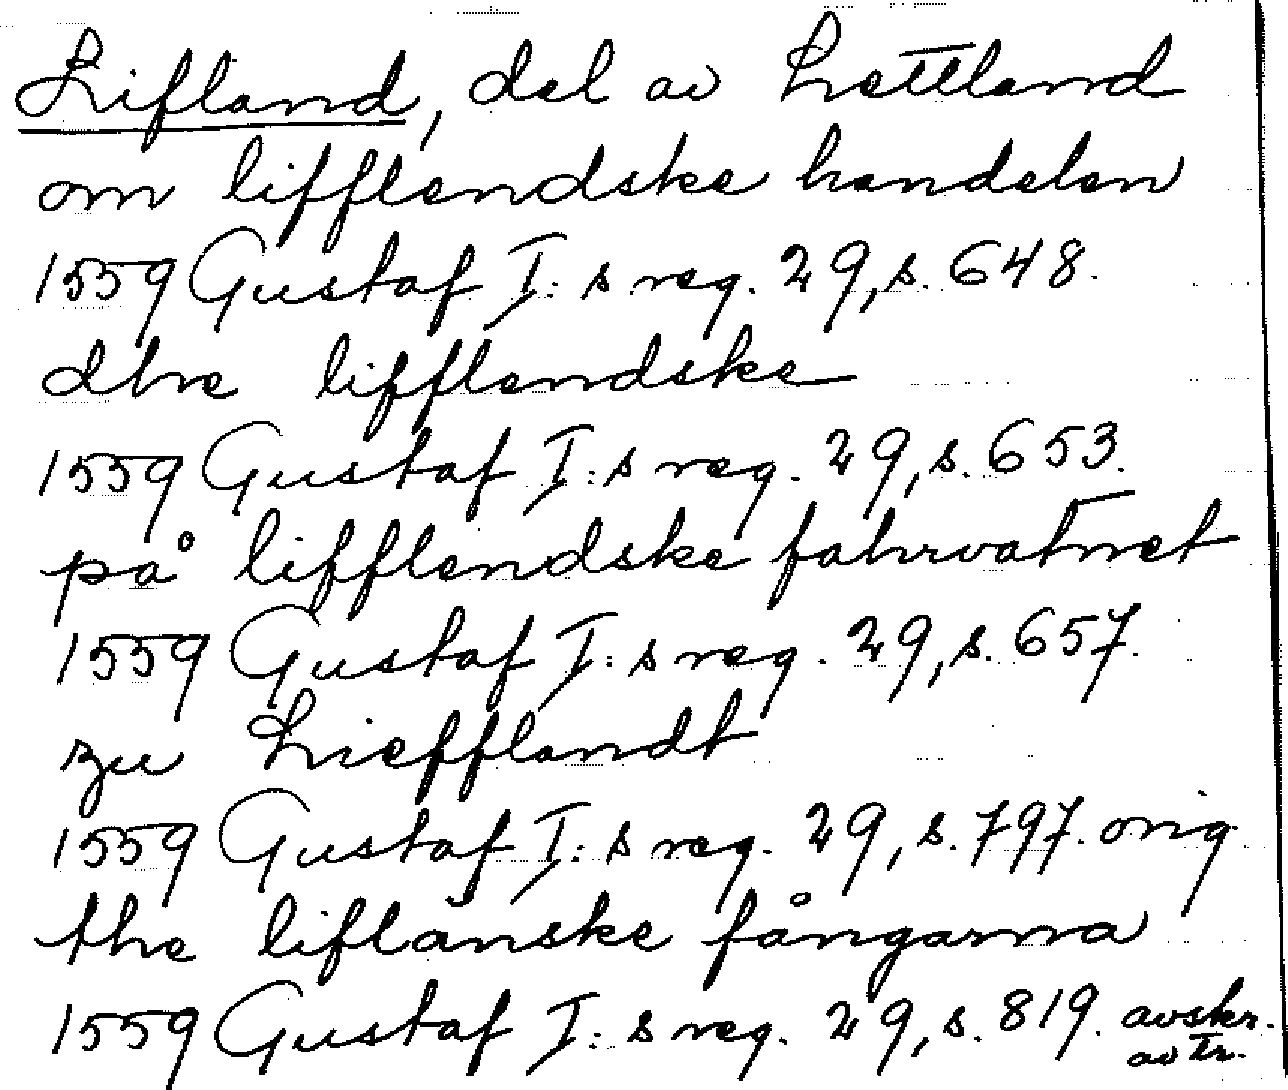 Lifland, del av Lettland
om lifflendske handelen
1559 Gustaf I:s reg. 29, s. 648.
dhe lifflendske
1559 Gustaf I:s reg. 29, s. 653.
på lifflendske fahrvatnet
1559 Gustaf I:s reg. 29, s. 657.
zu Liefflandt
1559 Gustaf I:s reg. 29, s. 797. orig
the liflänske fångarna
1559 Gustaf I:s reg. 29, s. 819. avskr.
av tr.